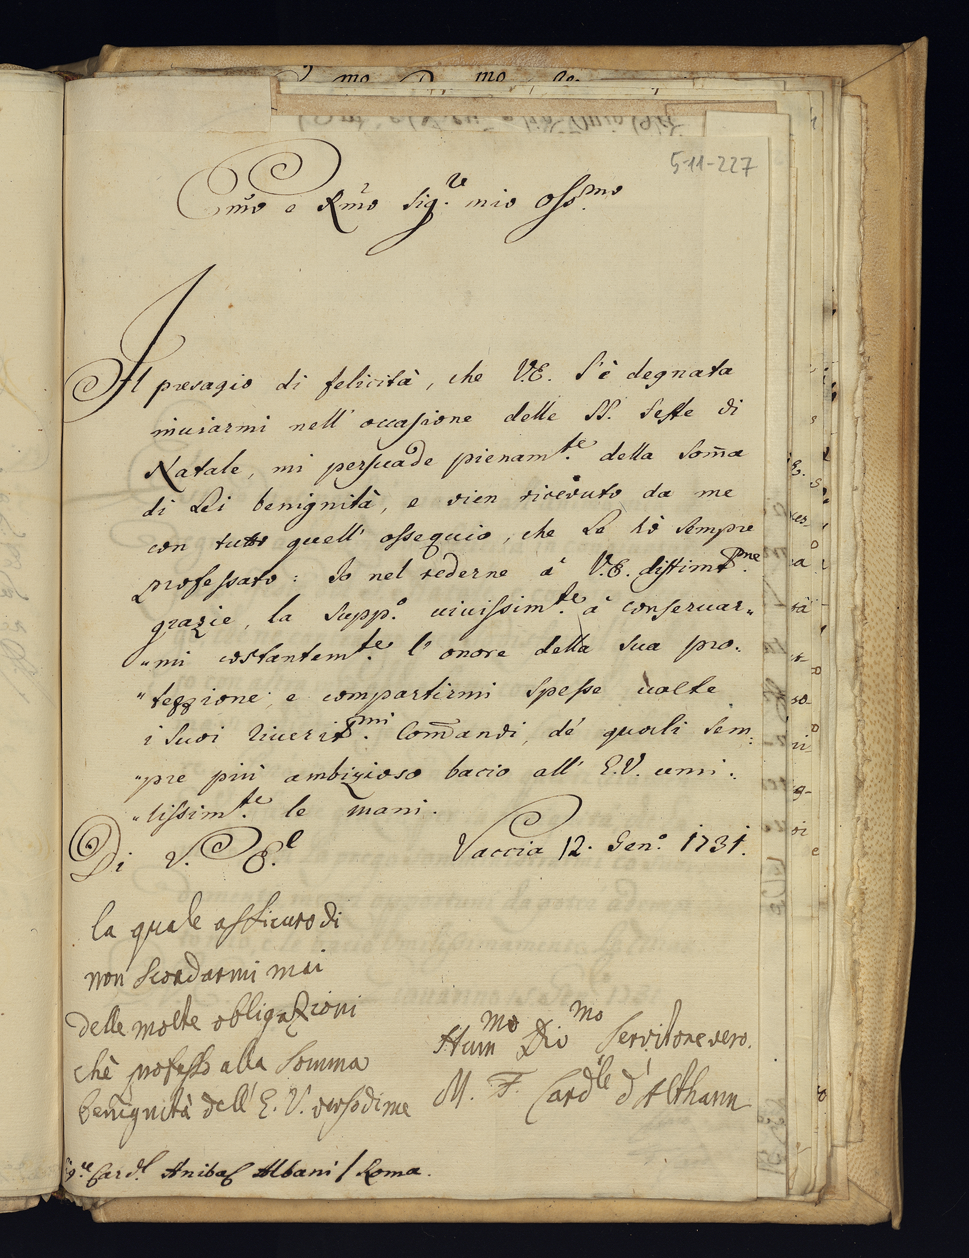 5-11-227
Em̃o e Rm̃o Sig.re mio Oss.mo
Il presagio di felicità, che V.E. s'è degnata
inuiarmi nell' occasione delle SS. feste di
Natale, mi persuade pienam.te della Som̃a
di Lei benignità, e vien riceuuto da me
con tutto quell' ossequio, che Le hò sempre
professato: Io nel rederne à V.E. distint.me
grazie, la supp.o uiuissim.te à conseruar„
„mi costantem.te l'onore della sua pro„
„tezzione, e compartirmi spesse uolte
i suoi riuerit.mi Com̃andi, de' quali sem„
„pre più ambizioso bacio all' E.V. umi„
„lissim.te le mani.
Di V. E.
Vaccia 12. Gen.o 1731.
la quale assicuro di
non scordarmi mai
delle molte obligazioni
chè professo alla somma
benignità dell' E. V. verso di me
Hum.mo Div.mo Servitore vero.
M. F. Card.le d'Althann
Sig.re Card.l Anibal Albani / Roma.